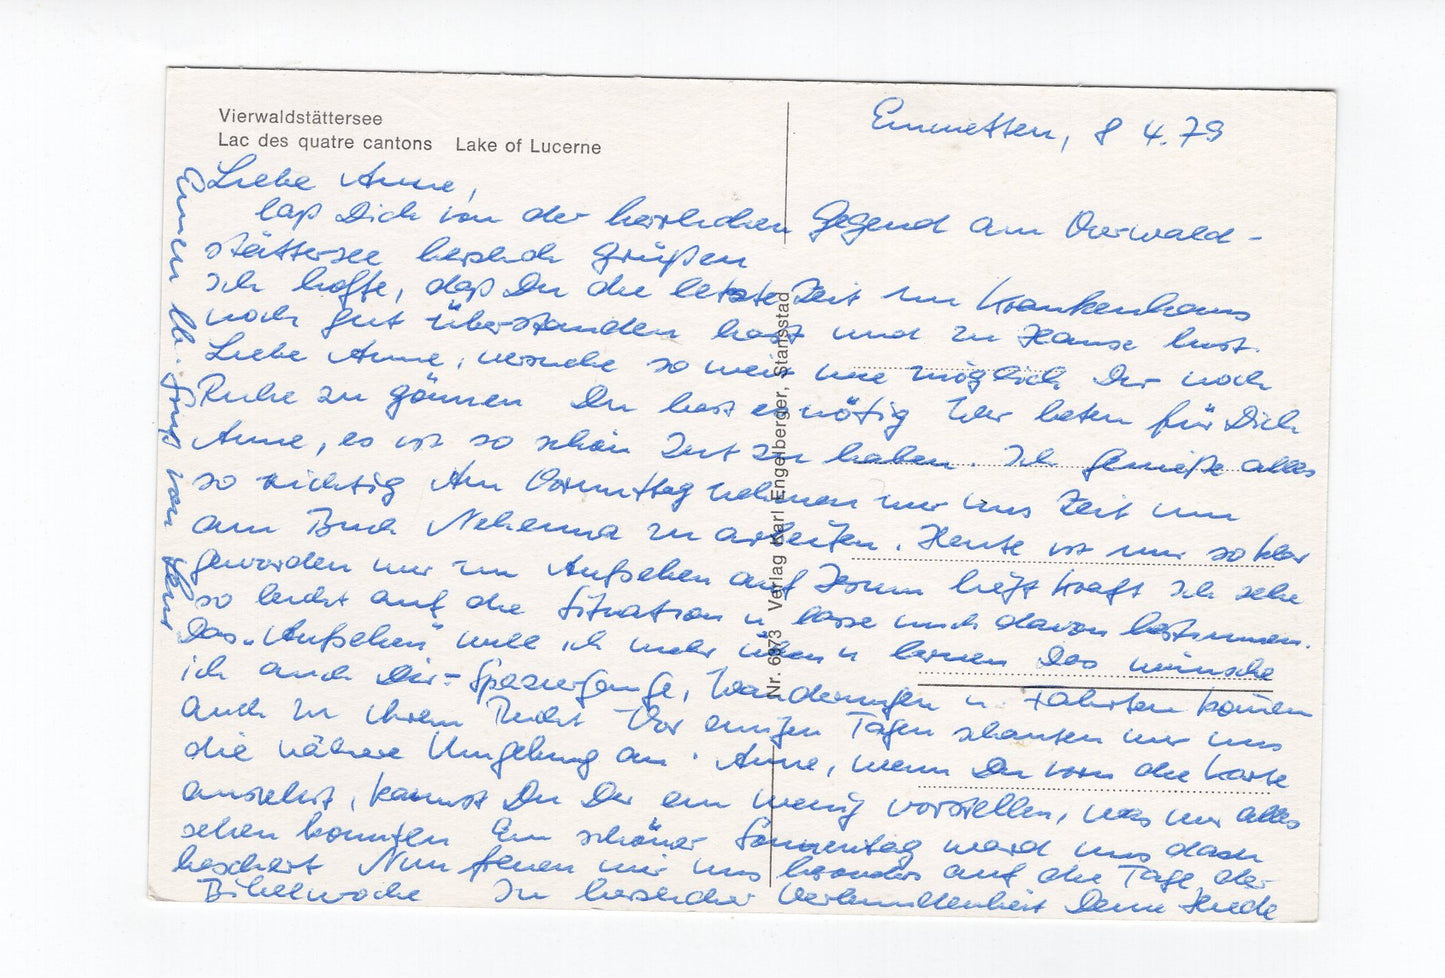 Vierwaldstättersee
Lac des quatre cantons Lake of Lucerne
Emmetten, 8 4.79
Liebe Anne,
laß Dich von der herrlichen Gegend am Vierwald-
stättersee herzlich grüßen
Ich hoffe, daß Du die letzte Zeit im Krankenhaus
noch gut überstanden hast und zu Hause bist.
Liebe Anne, versuche so weit wie möglich Dir noch
Ruhe zu gönnen Du hast es nötig Wir beten für Dich
Anne, es ist so schön Zeit zu haben. Ich genieße alles
so richtig Am Vormittag nehmen wir uns Zeit um
am Buch Nehemia zu arbeiten. Heute ist mir so klar
geworden nur im Aufsehen auf Jesum liegt Kraft Ich sehe
so leicht auf die Situation u lasse mich davon bestimmen.
Das „Aufsehen" will ich mehr üben u lernen Das wünsche
ich auch Dir - Spaziergänge, Wanderungen u Fahrten kommen
auch zu ihrem Recht Vor einigen Tagen schauten wir uns
die nähere Umgebung an. Anne, wenn Du vorn die Karte
ansiehst, kannst Du Dir ein wenig vorstellen, was wir alles
sehen konnten Ein schöner Sonnentag ward uns dazu
beschert Nun freuen wir uns besonders auf die Tage der
Bibelwoche In herzlicher Verbundenheit Deine Hiede
Einen lb. Gruß von
Nr. 6373 Verlag Karl Engelberger, Stansstad